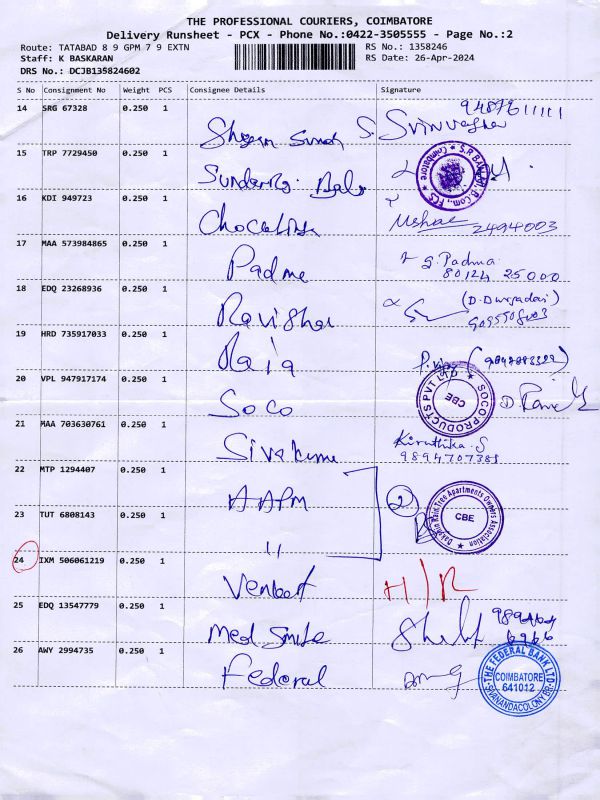 THE PROFESSIONAL COURIERS, COIMBATORE
Delivery Runsheet - PCX - Phone No.:0422-3505555 - Page No.:2
Route: TATABAD 8 9 GPM 7 9 EXTN
RS No.: 1358246
Staff: K BASKARAN
RS Date: 26-Apr-2024
DRS No.: DCJB135824602
S No Consignment No Weight PCS Consignee Details Signature
14 SRG 67328 0.250 1
15 TRP 7729450 0.250 1
S.R
Coimbatore
16 KDI 949723 0.250 1
2494003
17 MAA 573984865 0.250 1 Padma G. Padma
80124 25000
18 EDQ 23268936 0.250 1
19 HRD 735917033 0.250 1 Raja
20 VPL 947917174 0.250 1 Soco
SOCO PRODUCTS PVT LTD
CBE
21 MAA 703630761 0.250 1 Sivakumar Kiruthika. S
9894707385
22 MTP 1294407 0.250 1 AAPM 2
23 TUT 6808143 0.250 1 "
Dakshin Rain Tree Apartments Owners Association
CBE
24 IXM 506061219 0.250 1 Venkat
25 EDQ 13547779 0.250 1 Med Smile
26 AWY 2994735 0.250 1 Federal
THE FEDERAL BANK LTD
COIMBATORE
641012
SIVANANDACOLONY BR